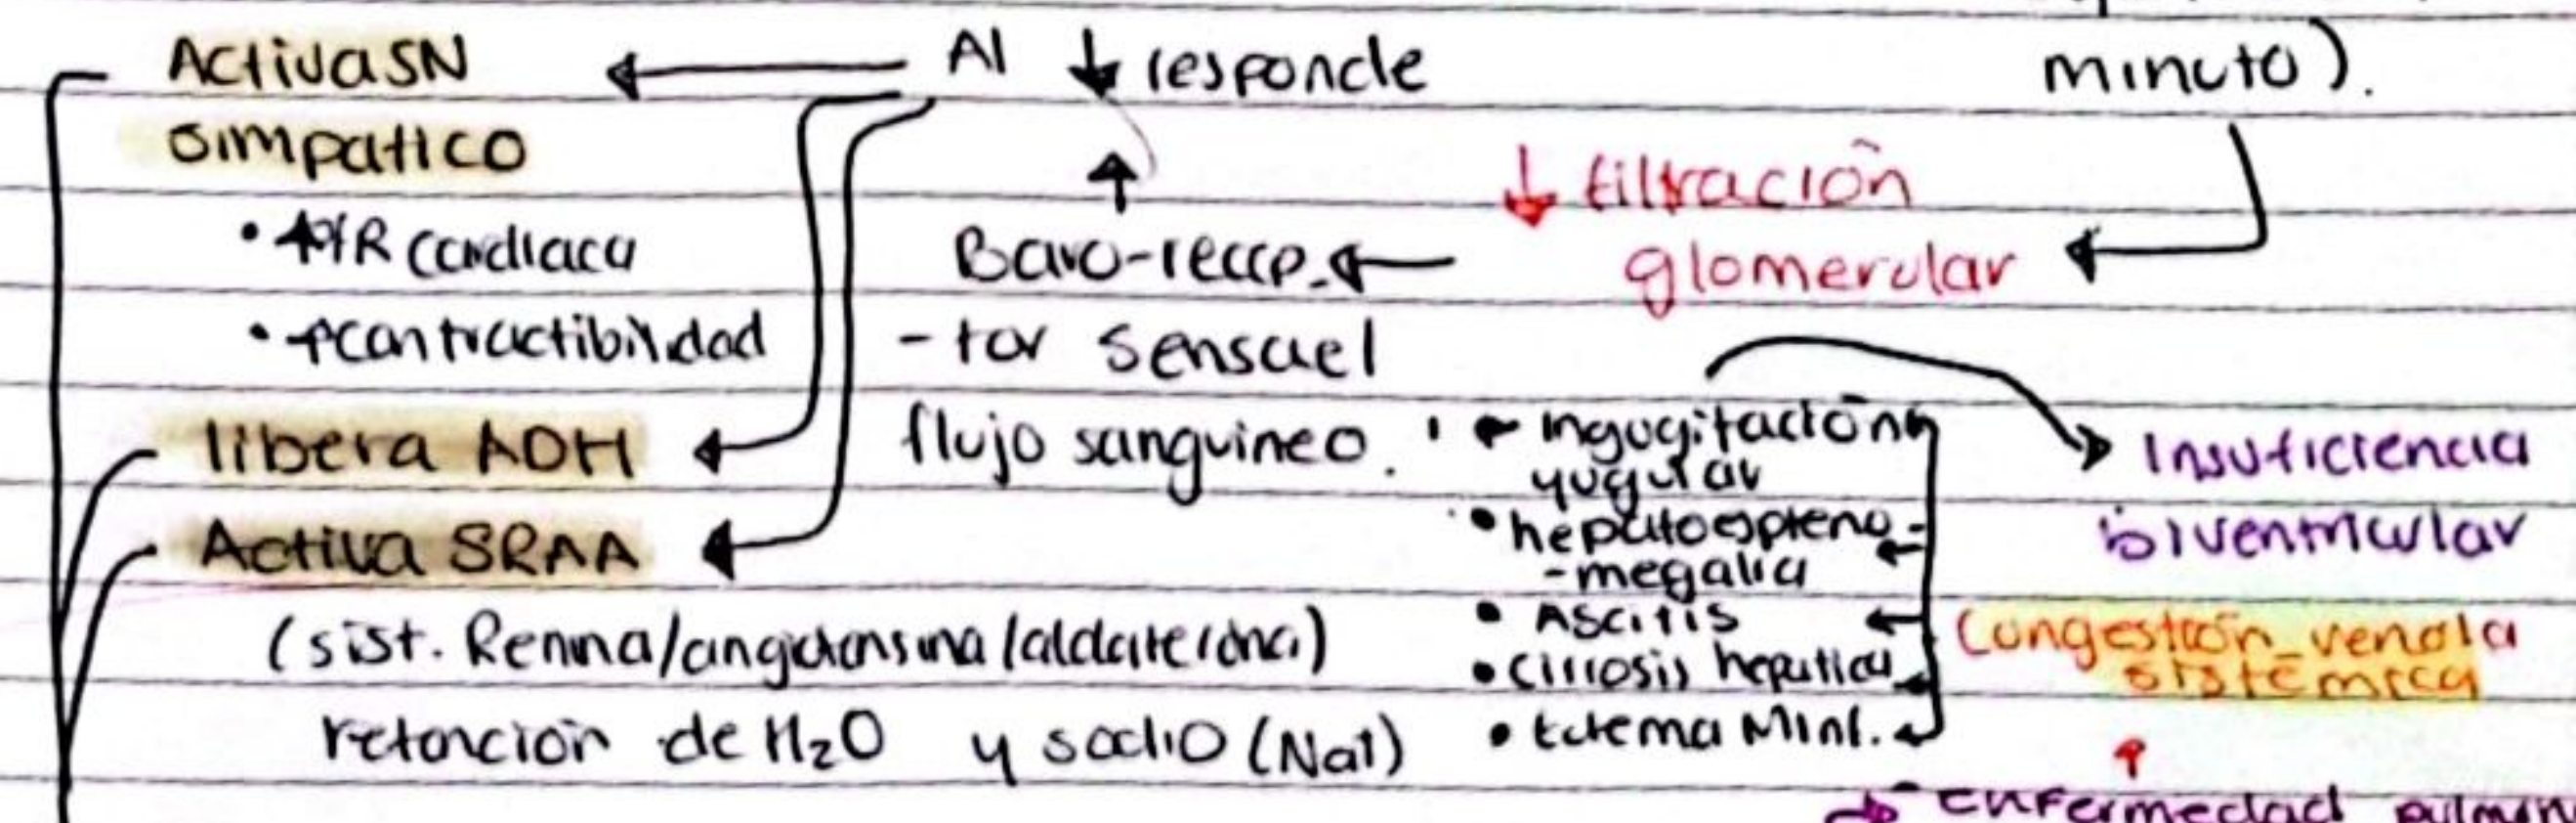 minuto).
Activa SN
simpatico
• ↑ R cardiaca
• ↑ contractibilidad
libera ADH
Activa SRAA
(sist. Renina/angiotensina/aldosterona)
retencion de H₂O y sodio (Na1)
Al ↓ responde
↑
Baro-recep.
-tor sensa el
flujo sanguineo.
↓ filtración
glomerular
• Ingugitación
yugular
• hepatoespleno-
-megalia
• Ascitis
• Cirrosis hepatica
• Edema MInf.
Insuficiencia
biventricular
Congestión venosa
sistémica
↑
→ enfermedad